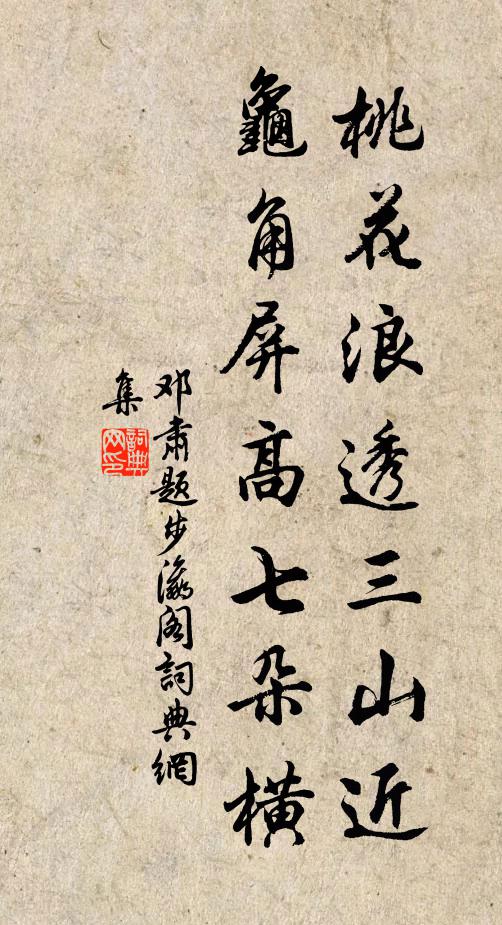 桃花浪透三山近
龜角屏高七朵橫
邓肅題步瀛阁詞典網
集
詞典
网印